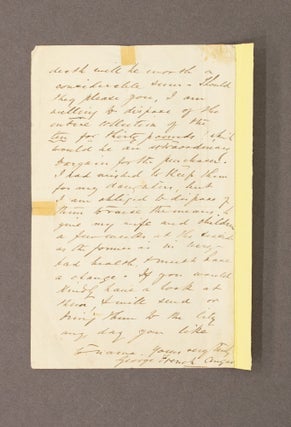 death will be worth a
considerable sum - Should
they please you, I am
willing to dispose of the
entire collection of the
ten for thirty pounds which
would be an extraordinary
bargain for the purchaser.
I had wished to keep them
for my daughter, but
I am obliged to dispose of
them to raise the means to
give my wife and children
a few weeks at the
as the former is in very
bad health, & must have
a change - If you would
kindly have a look at
them, I will send or
bring them to the City
any day you like
to name. Yours very truly
George French Angas